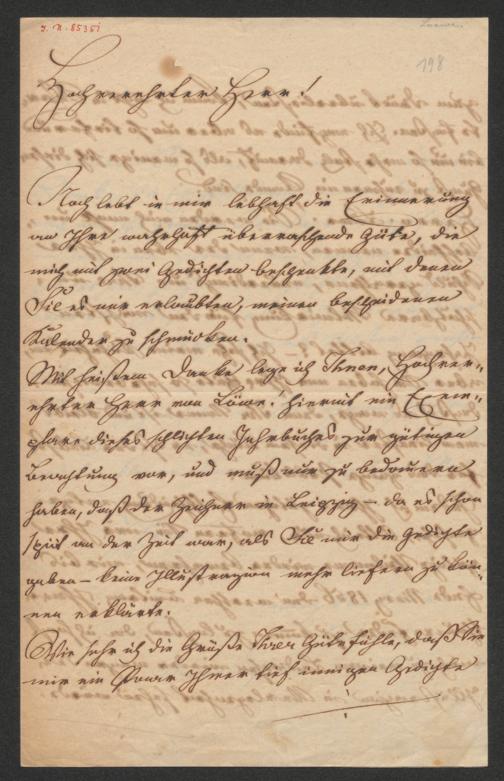 J. N. 85351
Loewe
198
Hochverehrter Herr!
Noch lebt in mir lebhaft die Erinnerung
an Ihre wahrhaft überraschende Güte, die
mich mit zwei Gedichten beschenkte, mit denen
Sie es mir erlaubten, meinen bescheidenen
Kalender zu schmücken.
Mit heißem Danke lege ich Ihnen, Hochver-
ehrter Herr von Löwe! hiermit ein Exem-
plare dieses schlichten Jahrbuches zur gütigen
Beachtung vor, und muß nur zu bedauern
haben, daß der Zeichner in Leipzig – da es schon
spät an der Zeit war, als Sie mir die Gedichte
gaben – keine Illustrazion mehr liefern zu kön-
nen erklärte.
Wie sehr ich die Größe Ihrer Güte fühle, daß Sie
mir ein Paar Ihrer tief innigen Gedichte